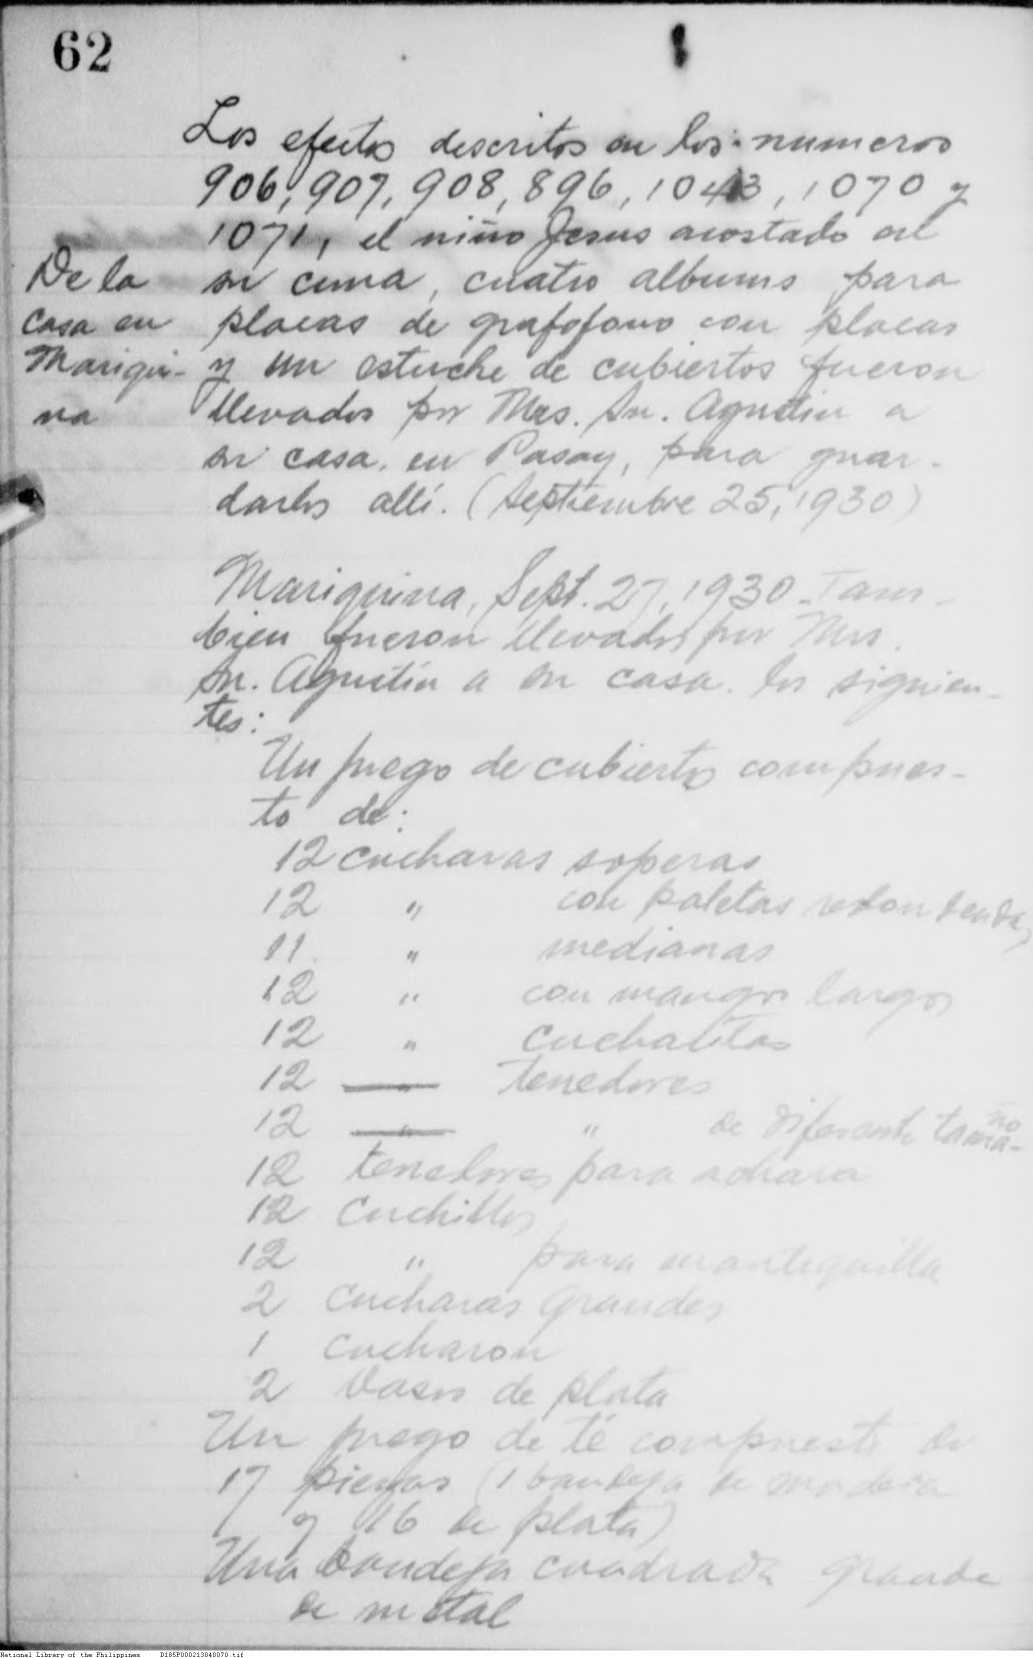 62
Los efectos descritos en los numeros
906, 907, 908, 896, 1043, 1070 y
1071, el niño Jesus acostado en
De la
su cuna, cuatro albums para
casa en
placas de grafofono con placas
Mariqui-
y un estuche de cubiertos fueron
na
llevados por Mrs. Sn. Agustin a
su casa. en Pasay, para guar-
darlos allí. (Septiembre 25, 1930)
Mariquina, Sept. 27, 1930 - Tam-
bien fueron llevados por Mrs.
Sn. Agustín a su casa. los siguien-
tes:
Un juego de cubiertos compues-
to de:
12 cucharas soperas
12 " con paletas
11. " medianas
12 " con mangos largos
12 " cuchalitas
12 — tenedores
12 — " de diferente tamaño
12 tenedores para achara
12 cuchillos
12 " para mantequilla
2 cucharas grandes
1 cucharon
2 vasos de plata
Un juego de té compuesto de
17 piezas (1 bandeja de madera
y 16 de plata)
Una bandeja cuadrada grande
de metal
National Library of the Philippines D185P000213840070.tif